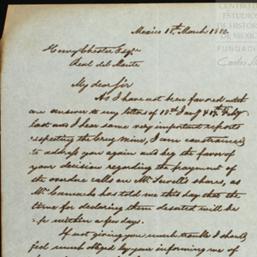 CENTRO
ESTUDIOS
DE HISTORIA
DE MEXICO
FUNDA
Carlos
Mexico 18th March 1852
Henry Chester Esqre
Real del Monte
My dear Sir
As I have not been favored with
an answer to my letters of 13th Jany & 4th Feby
last nor I hear some very important reports
respecting the Grey Mine, I am constrained
to address you again and beg the favor of
your decision regarding the payment of
the overdue calls on Mr. Sewell's shares, as
Mr. has told me this day that the
time for declaring them deserted will be
up within a few days.
If not giving you much trouble I should
feel much obliged by your informing me of